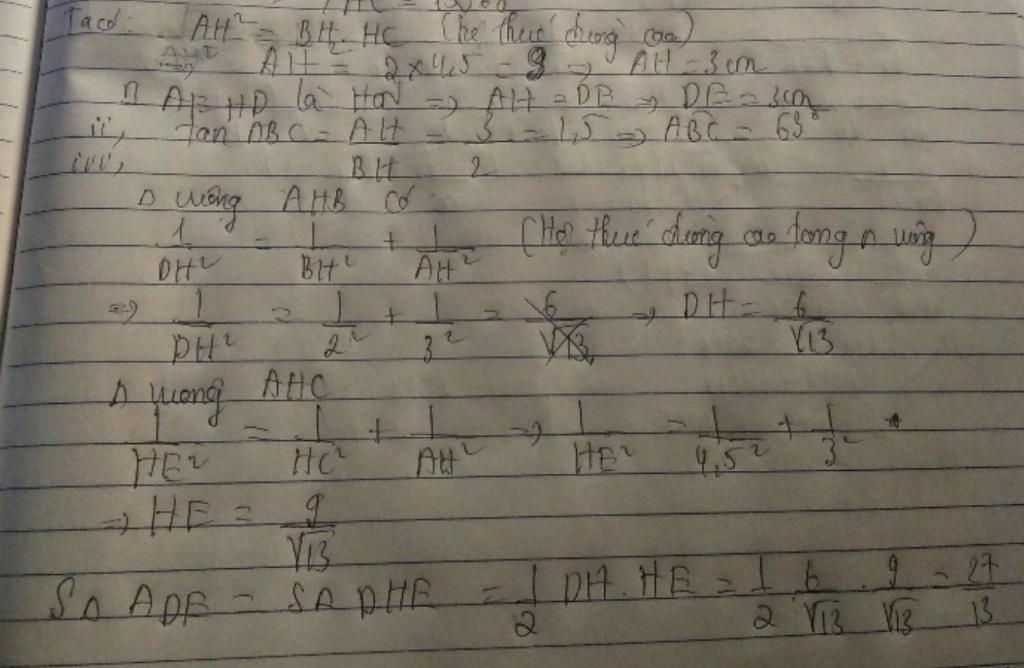 Ta có: AH² = BH . HC (hệ thức đường cao)
AH² = 2 x 4,5 = 9 => AH = 3 cm
AEHD là HCN => AH = DE => DE = 3cm
ii, tan ABC = AH/BH = 3/2 = 1,5 => ABC = 63°
iii,
Δ vuông AHB có
1/DH² = 1/BH² + 1/AH² (Hệ thức đường cao tong Δ vuông)
=> 1/DH² = 1/2² + 1/3² => DH = 6/√13
Δ vuong AHC
1/HE² = 1/HC² + 1/AH² => 1/HE² = 1/4,5² + 1/3²
=> HE = 9/√13
SΔ ADE = SΔ DHE = 1/2 DH . HE = 1/2 6/√13 . 9/√13 = 27/13